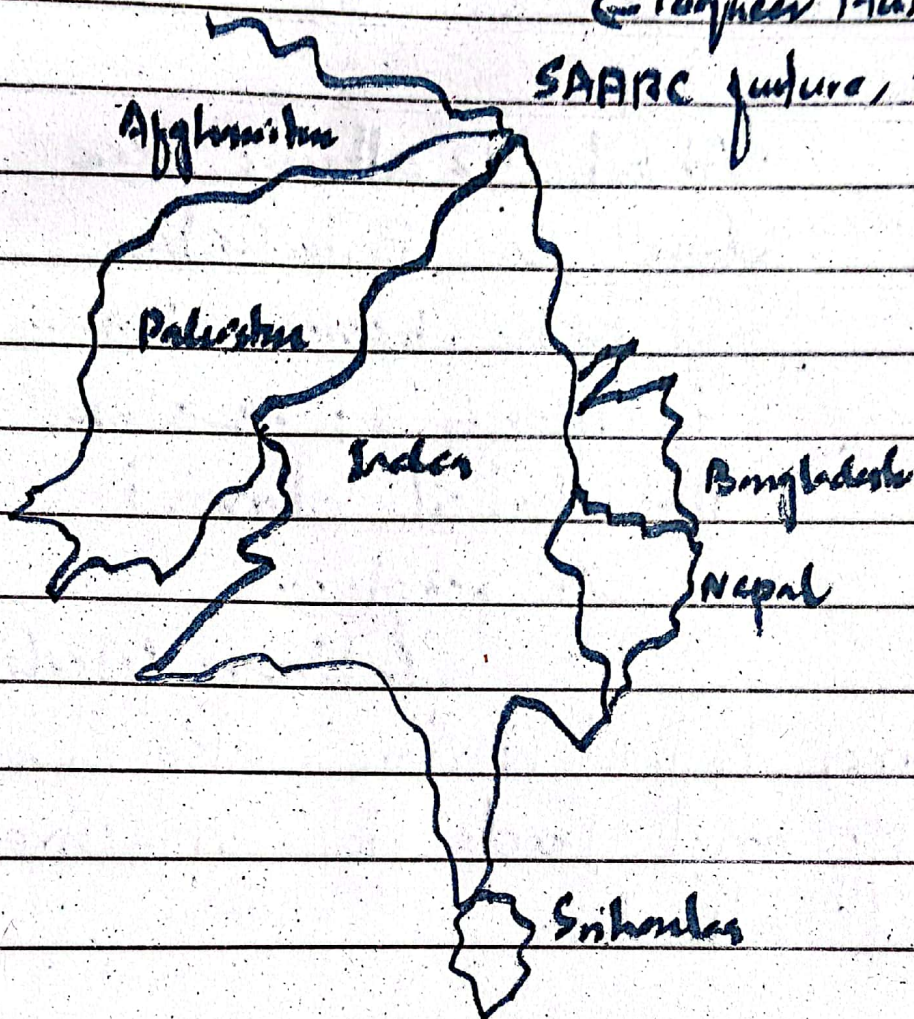 SAARC future,
Afghanistan
Pakistan
India
Bangladesh
Nepal
Srilanka